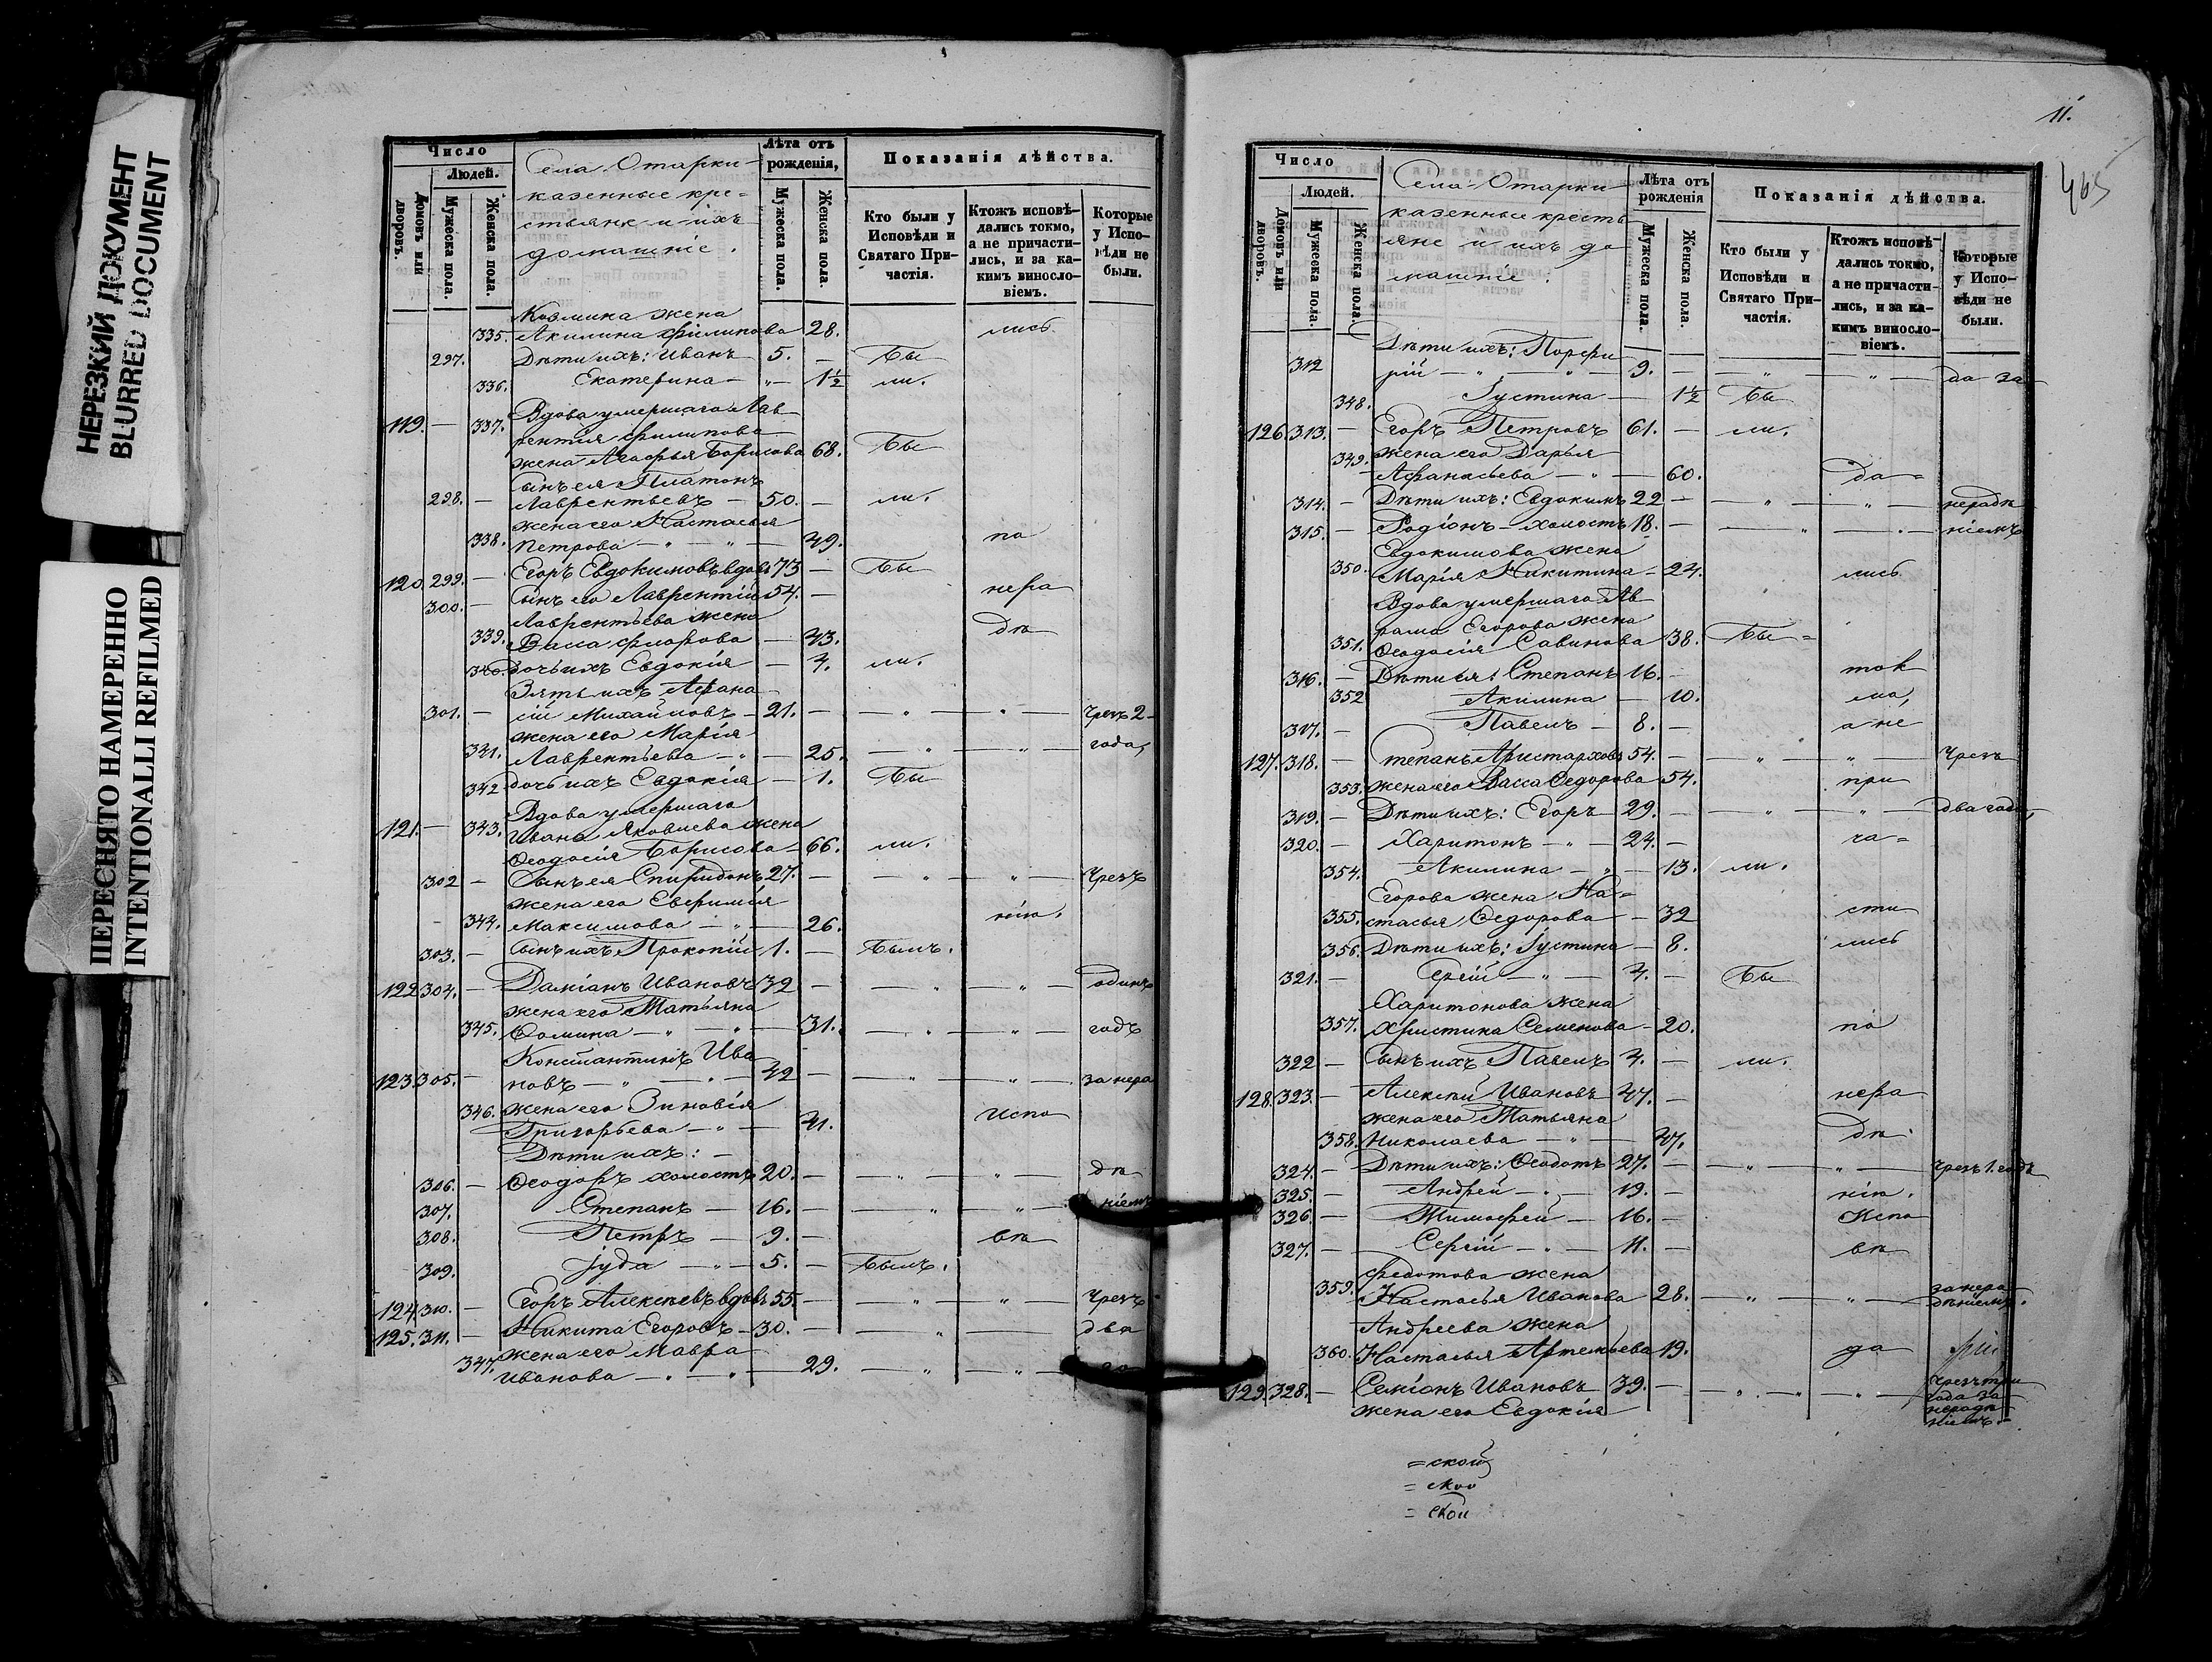 НЕРЕЗКИЙ ДОКУМЕНТ
BLURRED DOCUMENT
ПЕРЕСНЯТО НАМЕРЕННО
INTENTIONALLI REFILMED
Число
Людей.
Домовъ или дворовъ.
Мужеска пола.
Женска пола.
Села Отарки
казенные кре-
стьяне и ихъ
домашніе.
Лѣта отъ рожденія,
Мужеска пола.
Женска пола.
Показанія дѣйства.
Кто были у Исповѣди и Святаго Причастія.
Ктожъ исповѣдались токмо, а не причастились, и за какимъ винословіемъ.
Которые у Исповѣди не были.
Козмина жена
335. Акилина Филипова 28. лись
297. Дѣти ихъ: Иванъ 5. — Бы
336. Екатерина — „ — 1½ ли.
Вдова умершаго Лав
119. — 337. рентія Филипова
жена Агафья Борисова 68. Бы
Сынъ ея Платонъ
298. — Лаврентьевъ — 50. — ли.
жена его Настасья
338. Петрова — „ — „ — 49. по
120. 299. — Егоръ Евдокимовъ вдовъ 73 — Бы
300. — Сынъ его Лаврентій 54. — нера
Лаврентьева жена
339. Васса Флорова — 43. дѣ
340. дочь ихъ Евдокія — 4. ли.
Зять ихъ Афана
301. — сій Михайловъ — 21. — „ — „ — Чрезъ 2
жена его Марія
341. Лаврентьева — „ — 25. — „ — „ — года,
342 дочь ихъ Евдокія — 1. Бы
Вдова умершаго
121. — 343. Ивана Яковлева жена
Ѳеодосія Борисова — 66. ли.
302 — Сынъ ея Спиридонъ 27. — „ — „ — Чрезъ
жена его Евфимія
344. Максимова — „ — 26. нію.
303. — Сынъ ихъ Прокопій 1. — Былъ.
122 304. — Даміанъ Ивановъ 32 — „ — „ — одинъ
жена его Татьяна
345. Ѳомина — „ — „ — 31. — „ — „ — годъ
Константинъ Ива
123 305. — новъ — „ — „ — 42 — „ — „ — за нера
346. жена его Зиновія
Григорьева — „ — 41. испо
Дѣти ихъ: —
306. — Ѳеодоръ холостъ 20. — „ — „ — дѣ
307. Степанъ — 16. — „ — „ — ніемъ
308. Петръ — 9. — вѣ
309. Іуда — „ — 5. — Былъ.
124. 310. — Егоръ Алексѣевъ вдовъ 55. — „ — „ — Чрезъ
125. 311. — Никита Егоровъ — 30. — „ — два
347. жена его Мавра
Иванова — „ — „ — 29. — „ — „ — го
11.
465
Число
Людей.
Домовъ или дворовъ.
Мужеска пола.
Женска пола.
Села Отарки
казенные кресть
яне и ихъ до
машніе.
Лѣта отъ рожденія
Мужеска пола.
Женска пола.
Показанія дѣйства.
Кто были у Исповѣди и Святаго Причастія.
Ктожъ исповѣдались токмо, а не причастились, и за какимъ винословіемъ.
Которые у Исповѣди не были.
Дѣти ихъ: Порфи
312 рій — „ — „ — 9. — „ — „ — да за
348. Іустина — 1½ Бы
126. 313. — Егоръ Петровъ 61. — ли.
349. жена его Дарья
Афанасьева — „ — 60. да
314. — Дѣти ихъ: Евдокимъ 22 — „ — „ — нерадѣ
315. — Родіонъ холостъ 18. — „ — „ — ніемъ
Евдокимова жена
350. Марія Никитина — 24. лись
Вдова умершаго Ав
рама Егорова жена
351. Ѳеодосія Савинова 38. Бы
316. — Дѣти ея: Степанъ 16. — ток
352 Акилина — 10. мо,
317. — Павелъ — 8. — а не
127. 318. — тепанъ Аристарховъ 54. — „ — „ — Чрезъ
353. жена его Васса Ѳедорова 54. при
319. — Дѣти ихъ: Егоръ 29. — „ — „ — два года,
320. — Харитонъ — „ — 24. — ча
354. Акилина — „ — 13. ли.
Егорова жена На
355. стасья Ѳедорова — 32 сти
356. Дѣти ихъ: Іустина — 8. лись
321. — Сергій — „ — 4. — Бы
Харитонова жена
357. Христина Семенова — 20. по
322 — Сынъ ихъ Павелъ 4. — ли.
128. 323. — Алексѣй Ивановъ 47. — нера
жена его Татьяна
358. Николаева — „ — 47. дѣ
324. — Дѣти ихъ: Ѳеодотъ 27. — „ — „ — чрезъ 1. годъ
325. — Андрей — „ — 19. — нію.
326 — Тимофей — 16. — Испо
327. — Сергій — „ — 11. — вѣ
Федотова жена
359. Настасья Иванова 28. — „ — „ — за нера
дѣніемъ.
Андреева жена
360. Настасья Артемьева 19. да
129. 328. — Семіонъ Ивановъ 39. — „ — „ — Чрезъ три
года за
нерадѣ
ніемъ.
жена его Евдокія